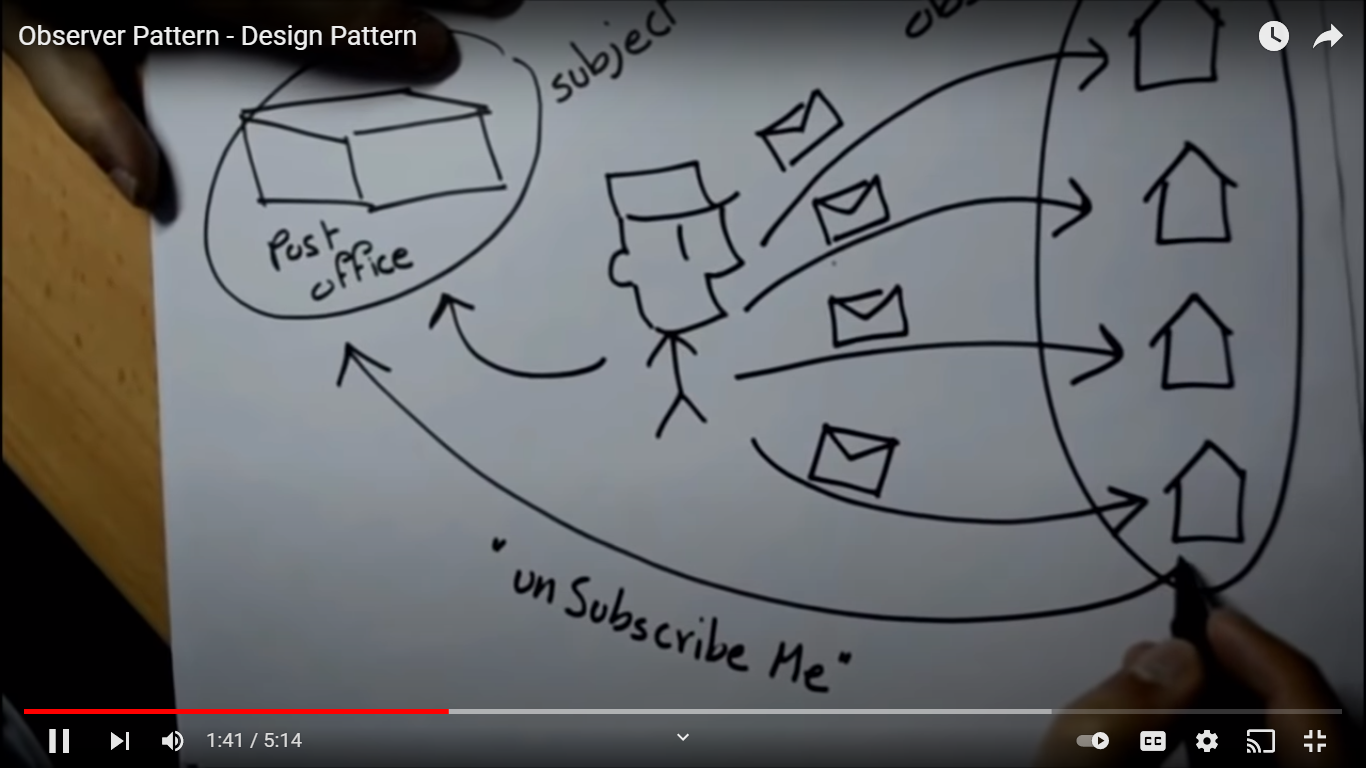 Observer Pattern - Design Pattern
subject
Post
office
"un Subscribe Me"
1:41 / 5:14
CC